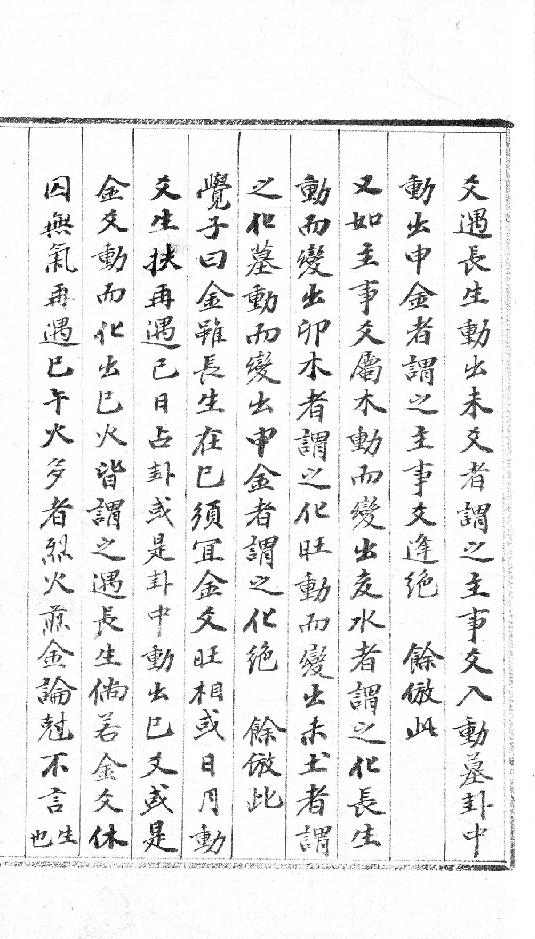 爻遇長生動出未爻者謂之主事爻入動墓卦中
動出申金者謂之主事爻逢絶　餘倣此
又如主事爻屬木動而變出亥水者謂之化長生
動而變出卯木者謂之化旺動而變出未土者謂
之化墓動而變出申金者謂之化絶　餘倣此
覺子曰金雖長生在巳須宜金爻旺相或日月動
爻生扶再遇巳日占卦或是卦中動出巳爻或是
金爻動而化出巳火皆謂之遇長生倘若金爻休
囚無氣再遇巳午火多者烈火煎金論尅不言生也